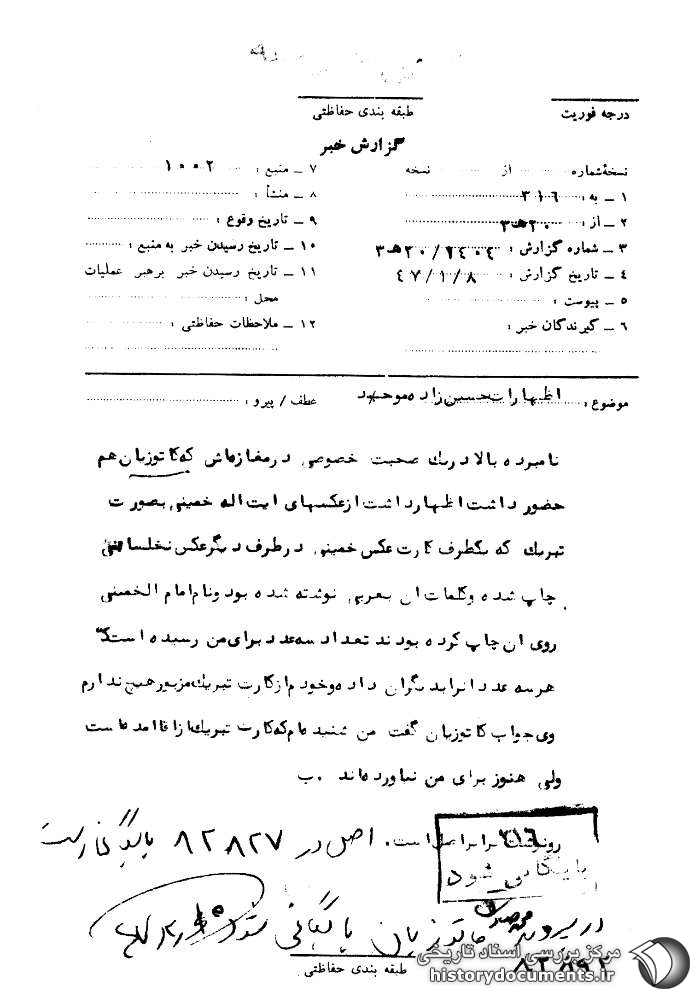 درجه فوریت
طبقه بندی حفاظتی
گزارش خبر
نسخهٔ شماره از نسخه
۱ ـ به: ۳۱۶
۲ ـ از: ۲۰ه‍۳
۳ ـ شماره گزارش: ۲۰/۲۴۰۴ه‍۳
۴ ـ تاریخ گزارش: ۴۷/۱/۸
۵ ـ پیوست:
۶ ـ گیرندگان خبر:
۷ ـ منبع: ۱۰۰۲
۸ ـ منشأ:
۹ ـ تاریخ وقوع:
۱۰ ـ تاریخ رسیدن خبر به منبع:
۱۱ ـ تاریخ رسیدن خبر برهبر عملیات
محل:
۱۲ ـ ملاحظات حفاظتی:
موضوع: اظهارات حسین زاده موحد
عطف / پیرو:
نامبرده بالا در یک صحبت خصوصی در مغازه‌اش که کاتوزیان هم
حضور داشت اظهار داشت از عکسهای ایت اله خمینی بصورت
تبریک که یکطرف کارت عکس خمینی در طرف دیگر عکس نخلستانی
چاپ شده و کلمات ان بعربی نوشته شده بود و نام امام الخمینی
روی ان چاپ کرده بودند تعداد سه عدد برای من رسیده است که
هر سه عدد انرا بدیگران داده و خودم از کارت تبریک مزبور هیچ ندارم
وی جواب کاتوزیان گفت من شنیده‌ام که کارت تبریک از اقا امده است
ولی هنوز برای من نیاورده‌اند .ب
رونوشت برابر اصل است. اصل در ۸۲۸۲۷ بایگانی است
۳۱۶
بایگانی شود
در پرونده کاتوزیان بایگانی شود
۸۳۸۹۲
طبقه بندی حفاظتی
مرکز بررسی اسناد تاریخی
historydocuments.ir